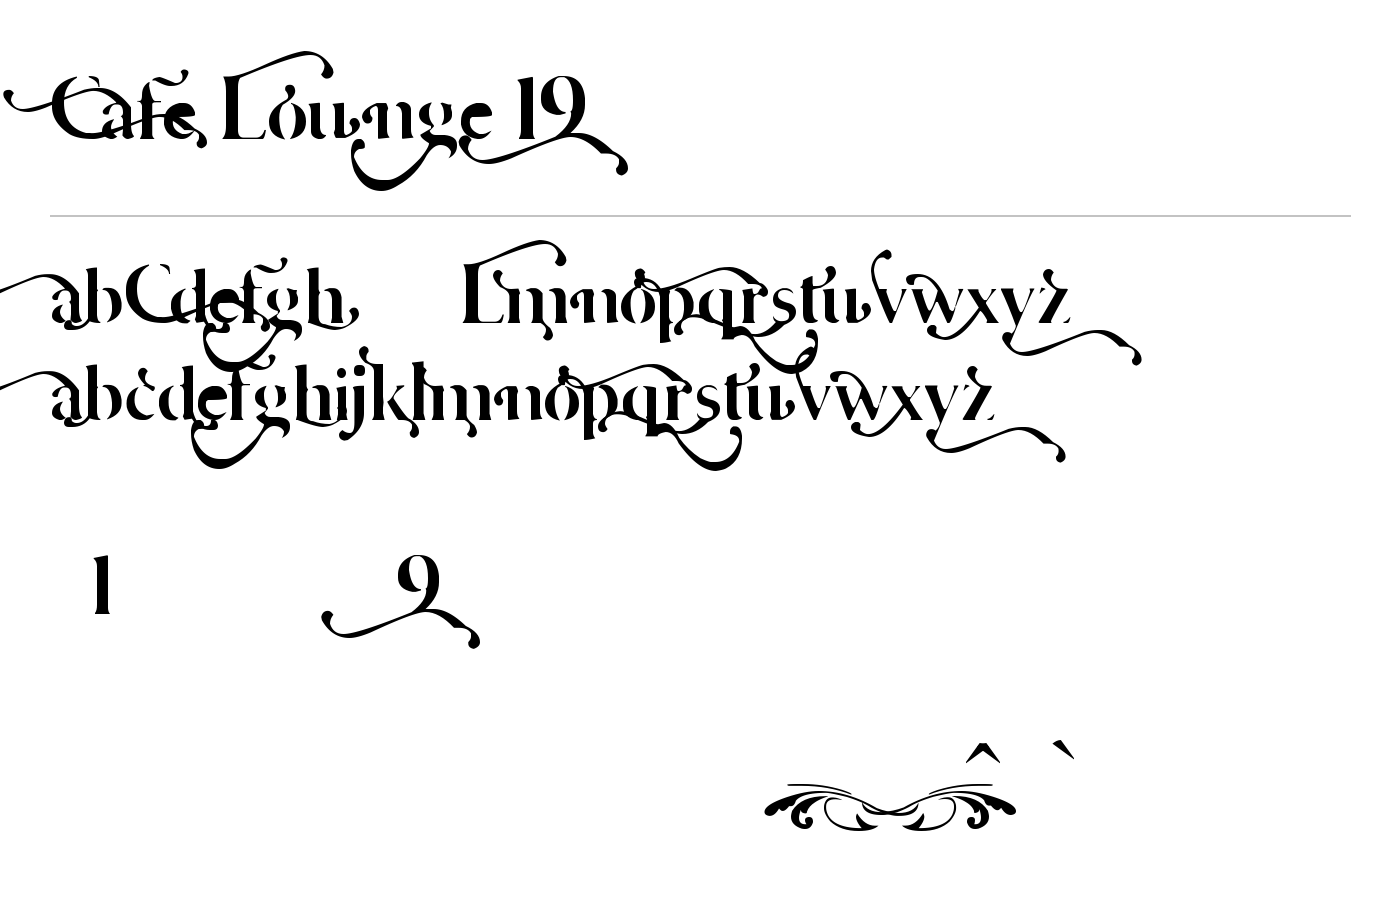 Cafe Lounge 19
abCdefgh Lmnopqrstuvwxyz
abcdefghijklmnopqrstuvwxyz
1 9
^ `